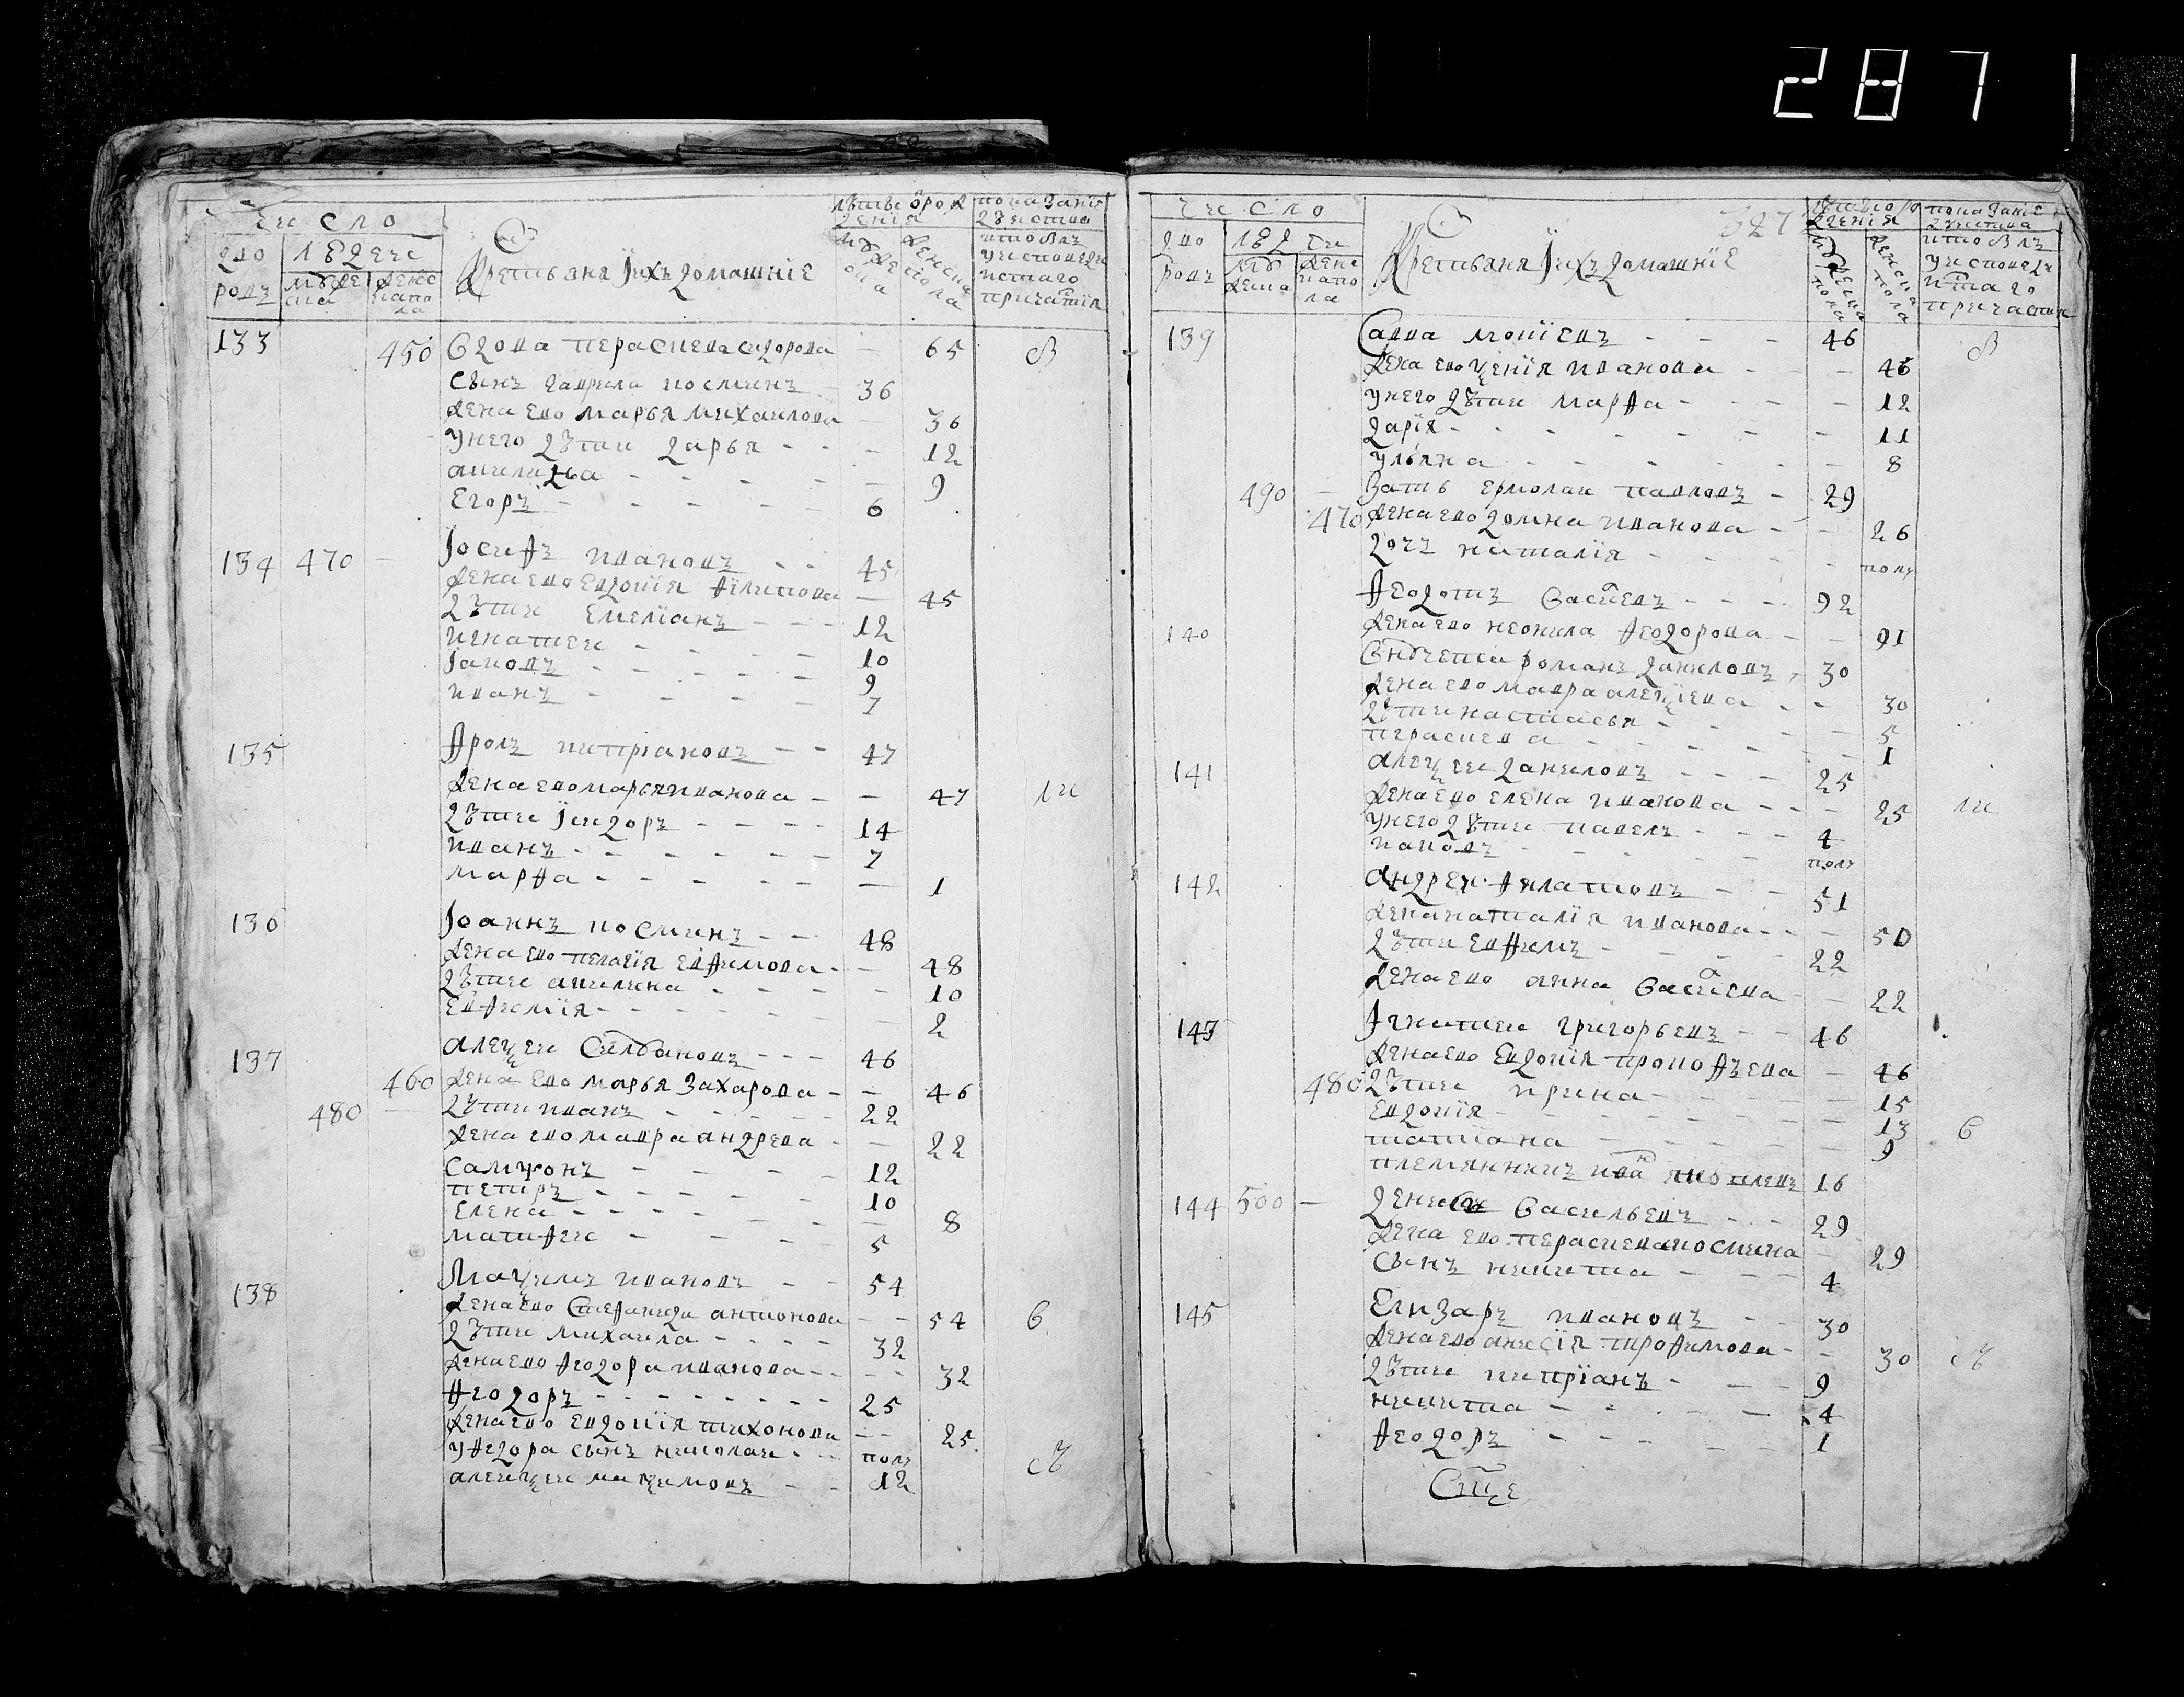 287
Число
дво
ровъ
людеи
муже
ска
женс
капо
ла
Крестьяня Iихъ домашнiе
лѣтъ о рож
денiа
показанiе
дѣиства
кто былъ
у исповеди
исттаго
причастiя
133 450 Вдова Параскева Сидорова — 65
Сынъ Гаврила Косминъ — 36
Жена ево Марья Михаилова — 36
Унего дѣти Дарья - - - 12
Акилина - - - - - 9
Егоръ - - - - - 6
134 470 — Iосифъ Ивановъ - - 45
Жена ево Евдокiя Филипова — 45
Дѣти Емелiанъ - - - 12
Игнатеи - - - - 10
Iаковъ - - - - 9
Иванъ - - - - 7
135 Фролъ Кипрiановъ - - 47
Жена ево Марья Иванова - — 47
Дѣти Iсидоръ - - - - 14
Иванъ - - - - - - 7
Марфа - - - - — 1
136 Iоаннъ Косминъ - - 48
Жена ево Пелагiя Ефимова - — 48
Дѣти Акилина - - - - - 10
Евфимiя - - - - - 2
137 Алеѯеи Силвановъ - - - 46
460 Жена ево Марья Захарова - - 46
480 — Дѣти Иванъ - - - - 22
Жена ево Мавра Андреева - — 22
Самѱонъ - - - - 12
Петръ - - - - - 10
Елена - - - - - - 8
Матфеи - - - - 5
138 Маѯимъ Ивановъ - - 54
Жена ево Стефанида Антонова - - 54
Дѣти Михаила - - - - 32
Жена ево Феодора Иванова - - - - 32
Феодоръ - - - - - - - 25
Жена ево Евдокiя Тихонова - - 25
У Федора сынъ Николаи - - полъ
Алеѯеи Маѯимовъ - - 12
Число
дво
ровъ
люде и
му
жеска
жене
капо
ла
Крестьяня Iихъ домашнiе
327
показанiе
дѣиства
кто былъ
у исповеди
истаго
причастия
139 Савва Мокiевъ - - - 46
Жена ево Ѯенiя Иванова - - - 46
Унего дѣти Марфа - - - - 12
Дарiя - - - - - - - 11
Ульяна - - - - - - 8
490 — Зать Ермолаи Павловъ - 29
470 Жена ево Домна Иванова - - 26
Дочь Наталiя - - - - полъ
Феодотъ Васiлевъ - - - 92
140 Жена ево Неонила Феодорова - - 91
Внучета Романъ Даниловъ - 30
Жена ево Мавра Алеѯiева - - 30
Дѣти Настасья - - - - 5
Параскева - - - - - - 1
141 Алеѯеи Даниловъ - - - 25
Жена ево Елена Иванова - - - 25
Унего дѣти Павелъ - - - 4
Иаковъ - - - - полъ
142 Андреи Филатовъ - - 51
Жена Наталiя Иванова - - - 50
Дѣти Евфимъ - - - - 22
Жена ево Анна Васiлева - - 22
143 Iгнатеи Григорьевъ - - 46
Жена ево Евдокiя Прокофьева — 46
480 Дѣти Ирина - - - - 15
Евдокiя - - - - - 13
Татiана - - - - 9
Племянникъ Иванъ Яковлевъ 16
144 500 — Денисъ Васильевъ - - - 29
Жена ево Параскева Космина - 29
Сынъ Никита - - - - 4
145 Елизаръ Ивановъ - - 30
Жена ево Анисiя Трофимова - - 30
Дѣти Кипрiанъ - - - 9
Никита - - - - 4
Феодоръ - - - - - 1